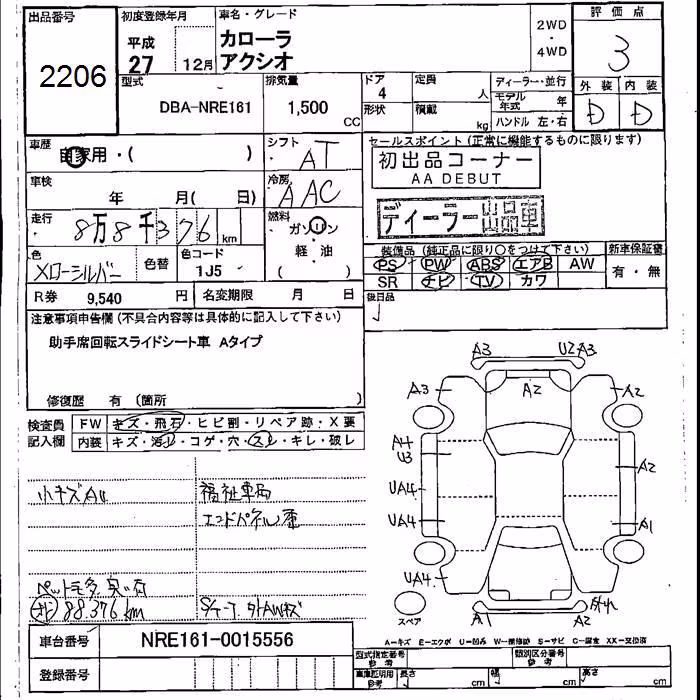 出品番号
2206
初度登録年月
平成
27 12月
車名・グレード
カローラ
アクシオ
2WD
・
4WD
評価点
3
外装 内装
D D
型式
DBA-NRE161
排気量
1,500
CC
ドア
4
形状
定員
人
積載
kg
ディーラー・並行
モデル年式 年
ハンドル 左・右
車歴
自家用・( )
シフト
AT
車検
年 月( 日)
冷房
AAC
走行
8万8千376 km
燃料
ガソリン
軽・油
( )
色
色替
色コード
1J5
R券 9,540 円
名変期限 月 日
セールスポイント (正常に機能するものに限ります)
初出品コーナー
AA DEBUT
ディーラー出品車
装備品 (純正品に限り○をつけて下さい)
PS PW ABS エアB AW
SR ナビ TV カワ
新車保証書
有・無
後日品
注意事項申告欄 (不具合内容等は具体的に記入して下さい)
助手席回転スライドシート車 Aタイプ
修復歴 有 (箇所 )
検査員
記入欄
FW キズ・飛石・ヒビ割・リペア跡・X要
内装 キズ・汚レ・コゲ・穴・スレ・キレ・破レ
小キズAU
福祉車両
ペット毛多 臭い有
88.376km
A3 U2 A3
A3 A2 A2
A4
U3
A2
UA4
UA4
A1
UA4
A1 A2
スペア
車台番号
NRE161-0015556
登録番号
A−キズ E−エクボ U−凹み W−補修跡 S−サビ C−腐食 XX−交換済
型式指定番号
参考
類別区分番号
参考
車庫証明用
参考
長さ cm
幅 cm
高さ cm